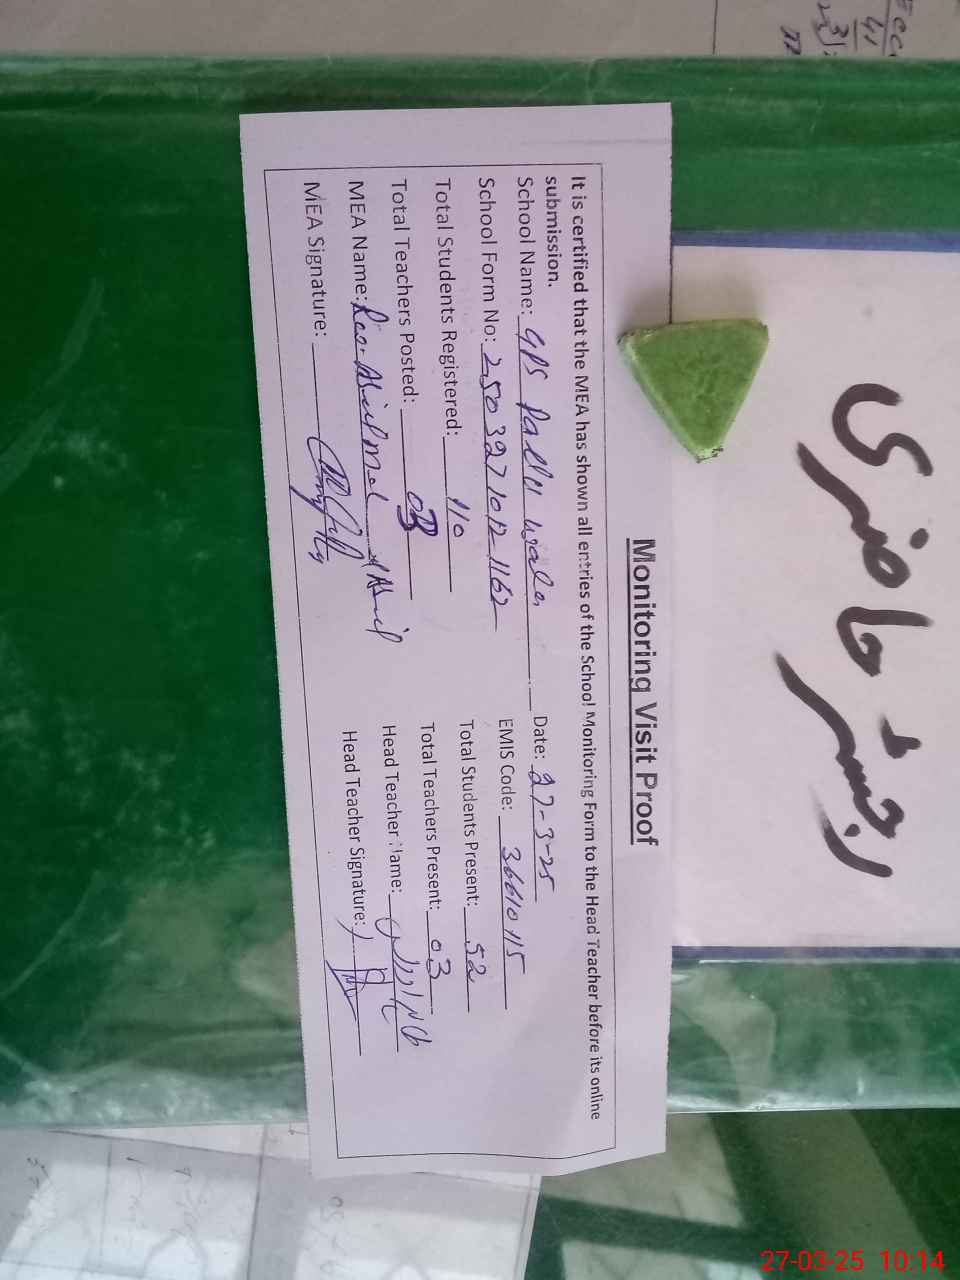 Monitoring Visit Proof
It is certified that the MEA has shown all entries of the School Monitoring Form to the Head Teacher before its online
submission.
School Name: GPS Date: 27-3-25
School Form No: 25032710121162 EMIS Code: 36610115
Total Students Registered: 110 Total Students Present: 52
Total Teachers Posted: 03 Total Teachers Present: 03
MEA Name: Head Teacher Name:
MEA Signature: Head Teacher Signature:
رجسٹر حاضری
27-03-25 10:14